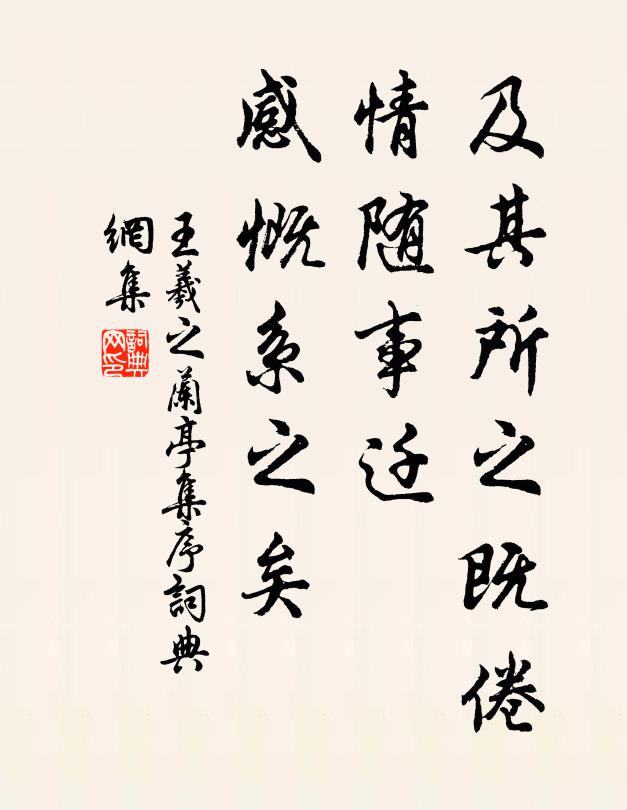 及其所之既倦
情随事迁
感慨系之矣
王羲之蘭亭集序詞典
網集
詞典
网印